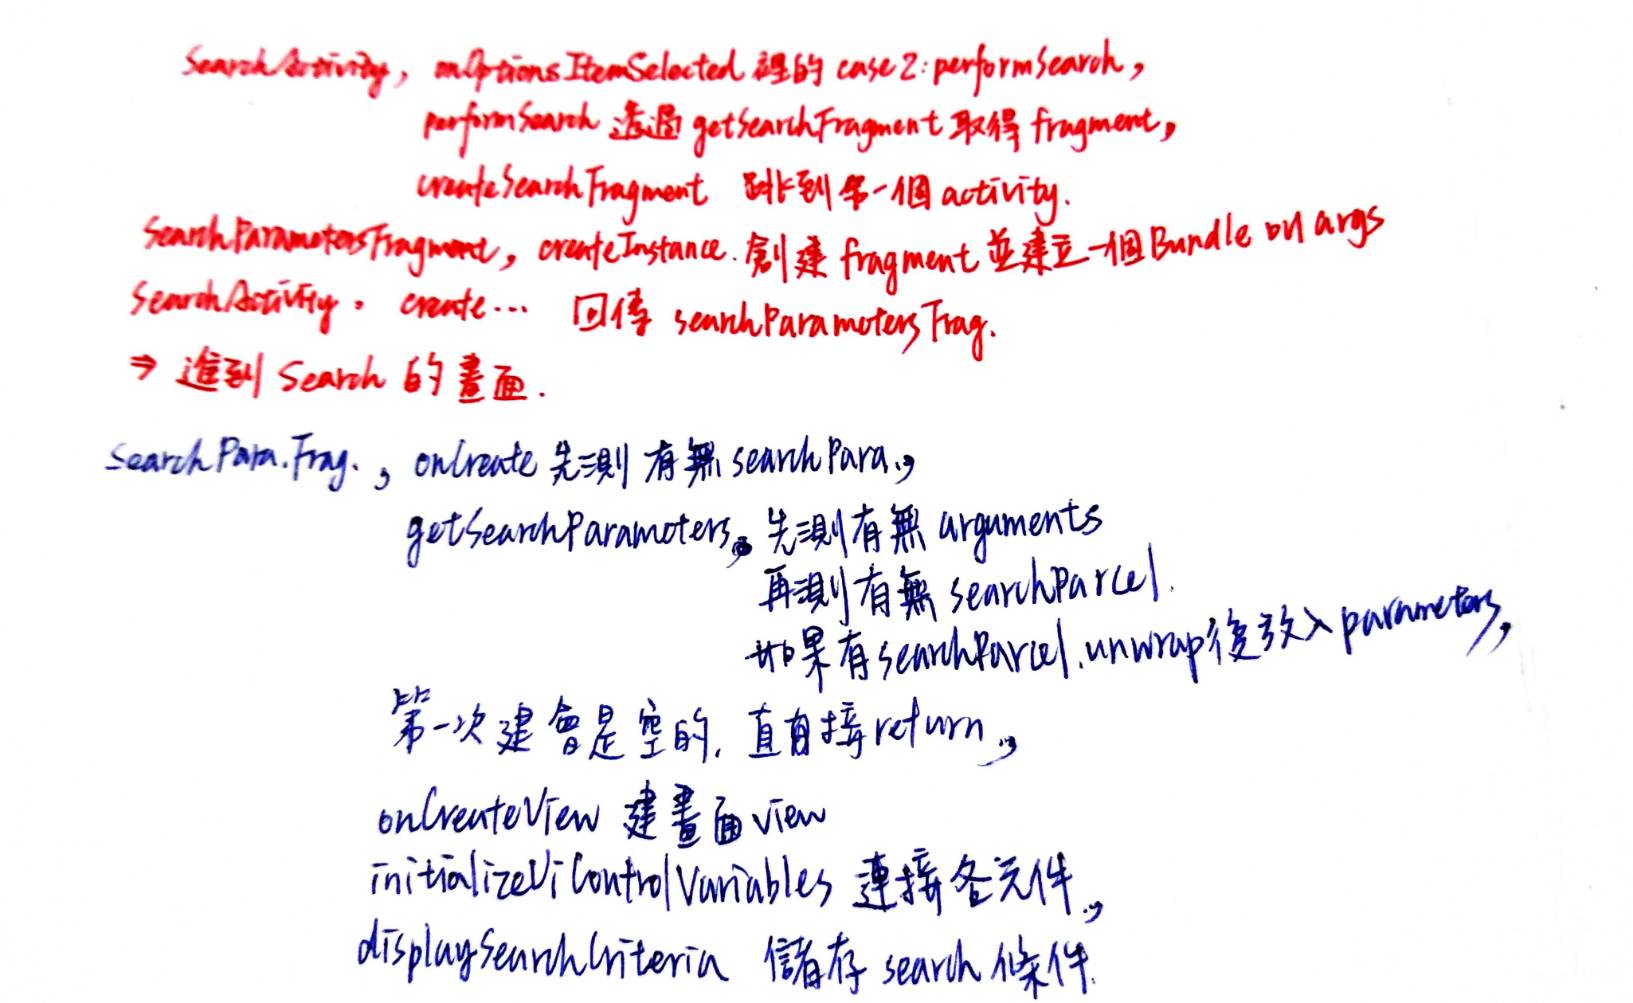 SearchActivity, onOptionsItemSelected 裡的 case 2: performSearch,
performSearch 透過 getSearchFragment 取得 fragment,
createSearchFragment 跳到另一個 activity.
SearchParametersFragment, createInstance. 創建 fragment 並建立一個 Bundle 叫 args
SearchActivity. create... 回傳 searchParametersFrag.
⇒ 進到 Search 的畫面.
SearchPara.Frag., onCreate 先測有無 searchPara.,
getSearchParameters. 先測有無 arguments
再測有無 searchParcel.
如果有 searchParcel, unwrap 後放入 parameters,
第一次建會是空的, 直接 return.,
onCreateView 建畫面 view
initializeUiControlVariables 連接各元件.,
displaySearchCriteria 儲存 search 條件.